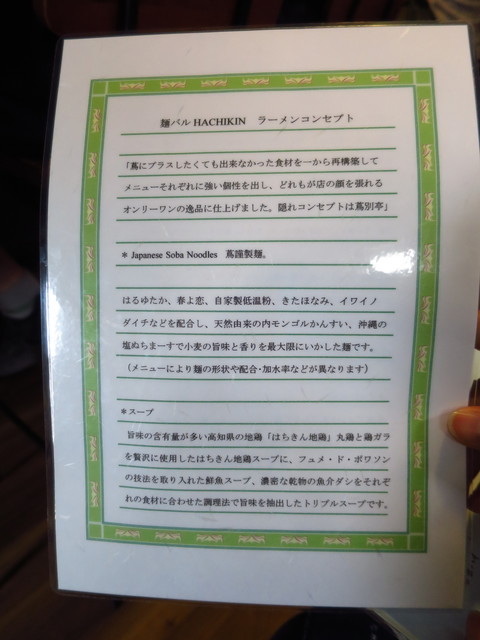 麺バル HACHIKIN ラーメンコンセプト
「蔦にプラスしたくても出来なかった食材を一から再構築して
メニューそれぞれに強い個性を出し、どれもが店の顔を張れる
オンリーワンの逸品に仕上げました。隠れコンセプトは蔦別亭」
＊Japanese Soba Noodles 蔦謹製麺。
はるゆたか、春よ恋、自家製低温粉、きたほなみ、イワイノ
ダイチなどを配合し、天然由来の内モンゴルかんすい、沖縄の
塩ぬちまーすで小麦の旨味と香りを最大限にいかした麺です。
（メニューにより麺の形状や配合･加水率などが異なります）
＊スープ
旨味の含有量が多い高知県の地鶏「はちきん地鶏」丸鶏と鶏ガラ
を贅沢に使用したはちきん地鶏スープに、フュメ・ド・ポワソン
の技法を取り入れた鮮魚スープ、濃密な乾物の魚介ダシをそれぞ
れの食材に合わせた調理法で旨味を抽出したトリプルスープです。